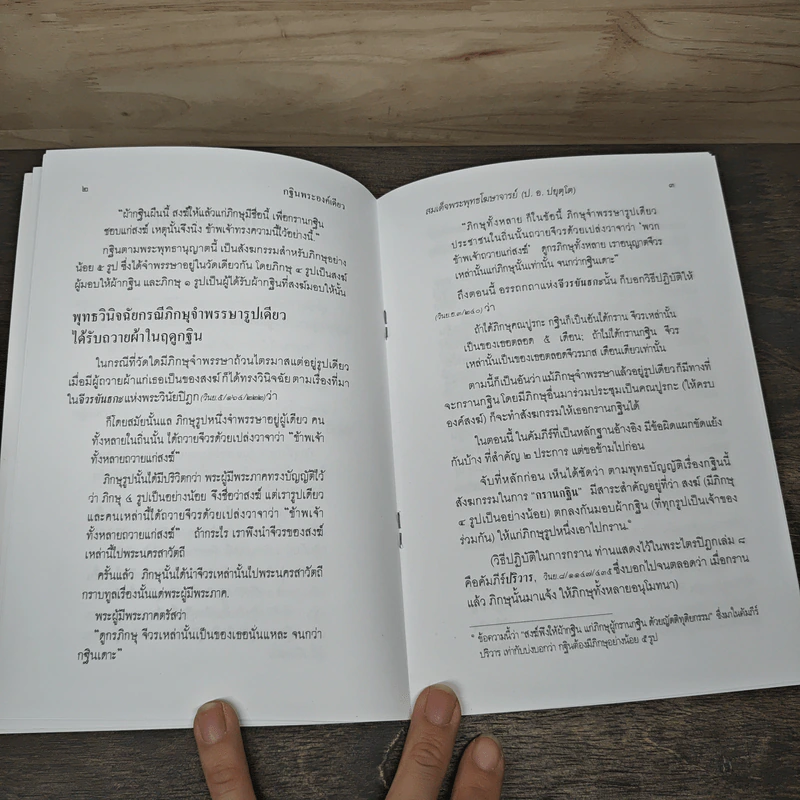 ๒
กฐินพระองค์เดียว
"ผ้ากฐินผืนนี้ สงฆ์ให้แล้วแก่ภิกษุมีชื่อนี้ เพื่อกรานกฐิน
ชอบแก่สงฆ์ เหตุนั้นจึงนิ่ง ข้าพเจ้าทรงความนี้ไว้อย่างนี้."
กฐินตามพระพุทธานุญาตนี้ เป็นสังฆกรรมสำหรับภิกษุอย่าง
น้อย ๕ รูป ซึ่งได้จำพรรษาอยู่ในวัดเดียวกัน โดยภิกษุ ๔ รูปเป็นสงฆ์
ผู้มอบให้ผ้ากฐิน และภิกษุ ๑ รูปเป็นผู้ได้รับผ้ากฐินที่สงฆ์มอบให้นั้น
พุทธวินิจฉัยกรณีภิกษุจำพรรษารูปเดียว
ได้รับถวายผ้าในฤดูกฐิน
ในกรณีที่วัดใดมีภิกษุจำพรรษาถ้วนไตรมาสแต่อยู่รูปเดียว
เมื่อมีผู้ถวายผ้าแก่เธอเป็นของสงฆ์ ก็ได้ทรงวินิจฉัย ตามเรื่องที่มา
ในจีวรขันธกะแห่งพระวินัยปิฎก (วินย.๕/๑๖๔/๒๒๒) ว่า
ก็โดยสมัยนั้นแล ภิกษุรูปหนึ่งจำพรรษาอยู่ผู้เดียว คน
ทั้งหลายในถิ่นนั้น ได้ถวายจีวรด้วยเปล่งวาจาว่า "ข้าพเจ้า
ทั้งหลายถวายแก่สงฆ์"
ภิกษุรูปนั้นได้มีปริวิตกว่า พระผู้มีพระภาคทรงบัญญัติไว้
ว่า ภิกษุ ๔ รูปเป็นอย่างน้อย จึงชื่อว่าสงฆ์ แต่เรารูปเดียว
และคนเหล่านี้ได้ถวายจีวรด้วยเปล่งวาจาว่า "ข้าพเจ้า
ทั้งหลายถวายแก่สงฆ์" ถ้ากระไร เราพึงนำจีวรของสงฆ์
เหล่านี้ไปพระนครสาวัตถี
ครั้นแล้ว ภิกษุนั้นได้นำจีวรเหล่านั้นไปพระนครสาวัตถี
กราบทูลเรื่องนั้นแด่พระผู้มีพระภาค.
พระผู้มีพระภาคตรัสว่า
"ดูกรภิกษุ จีวรเหล่านั้นเป็นของเธอนั่นแหละ จนกว่า
กฐินเดาะ"
สมเด็จพระพุทธโฆษาจารย์ (ป. อ. ปยุตฺโต)
๓
"ภิกษุทั้งหลาย ก็ในข้อนี้ ภิกษุจำพรรษารูปเดียว
ประชาชนในถิ่นนั้นถวายจีวรด้วยเปล่งวาจาว่า 'พวก
ข้าพเจ้าถวายแก่สงฆ์' ดูกรภิกษุทั้งหลาย เราอนุญาตจีวร
เหล่านั้นแก่ภิกษุนั้นเท่านั้น จนกว่ากฐินเดาะ"
ถึงตอนนี้ อรรถกถาแห่งจีวรขันธกะนั้น ก็บอกวิธีปฏิบัติให้
(วินย.อ.๓/๒๔๐) ว่า
ถ้าได้ภิกษุคณปูรกะ กฐินก็เป็นอันได้กราน จีวรเหล่านั้น
เป็นของเธอตลอด ๕ เดือน; ถ้าไม่ได้กรานกฐิน จีวร
เหล่านั้นเป็นของเธอตลอดจีวรมาส เดือนเดียวเท่านั้น
ตามนี้ก็เป็นอันว่า แม้ภิกษุจำพรรษาแล้วอยู่รูปเดียวก็มีทางที่
จะกรานกฐิน โดยมีภิกษุอื่นมาร่วมประชุมเป็นคณปูรกะ (ให้ครบ
องค์สงฆ์) ก็จะทำสังฆกรรมให้เธอกรานกฐินได้
ในตอนนี้ ในคัมภีร์ที่เป็นหลักฐานอ้างอิง มีข้อผิดแผกขัดแย้ง
กันบ้าง ที่สำคัญ ๒ ประการ แต่ขอข้ามไปก่อน
จับที่หลักก่อน เห็นได้ชัดว่า ตามพุทธบัญญัติเรื่องกฐินนี้
สังฆกรรมในการ "กรานกฐิน" มีสาระสำคัญอยู่ที่ว่า สงฆ์ (มีภิกษุ
๔ รูปเป็นอย่างน้อย) ตกลงกันมอบผ้ากฐิน (ที่ทุกรูปเป็นเจ้าของ
ร่วมกัน) ให้แก่ภิกษุรูปหนึ่งเอาไปกราน.*
(วิธีปฏิบัติในการกราน ท่านแสดงไว้ในพระไตรปิฎกเล่ม ๘
คือคัมภีร์ปริวาร, วินย.๘/๑๑๔๗/๔๓๕ ซึ่งบอกไปจนตลอดว่า เมื่อกราน
แล้ว ภิกษุนั้นมาแจ้ง ให้ภิกษุทั้งหลายอนุโมทนา)
* ข้อความนี้ว่า "สงฆ์พึงให้ผ้ากฐิน แก่ภิกษุผู้กรานกฐิน ด้วยญัตติทุติยกรรม" ซึ่งมาในคัมภีร์
ปริวาร เท่ากับบ่งบอกว่า กฐินต้องมีภิกษุอย่างน้อย ๕ รูป